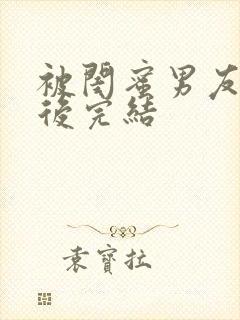 被閨蜜男友
後完結
袁寶拉